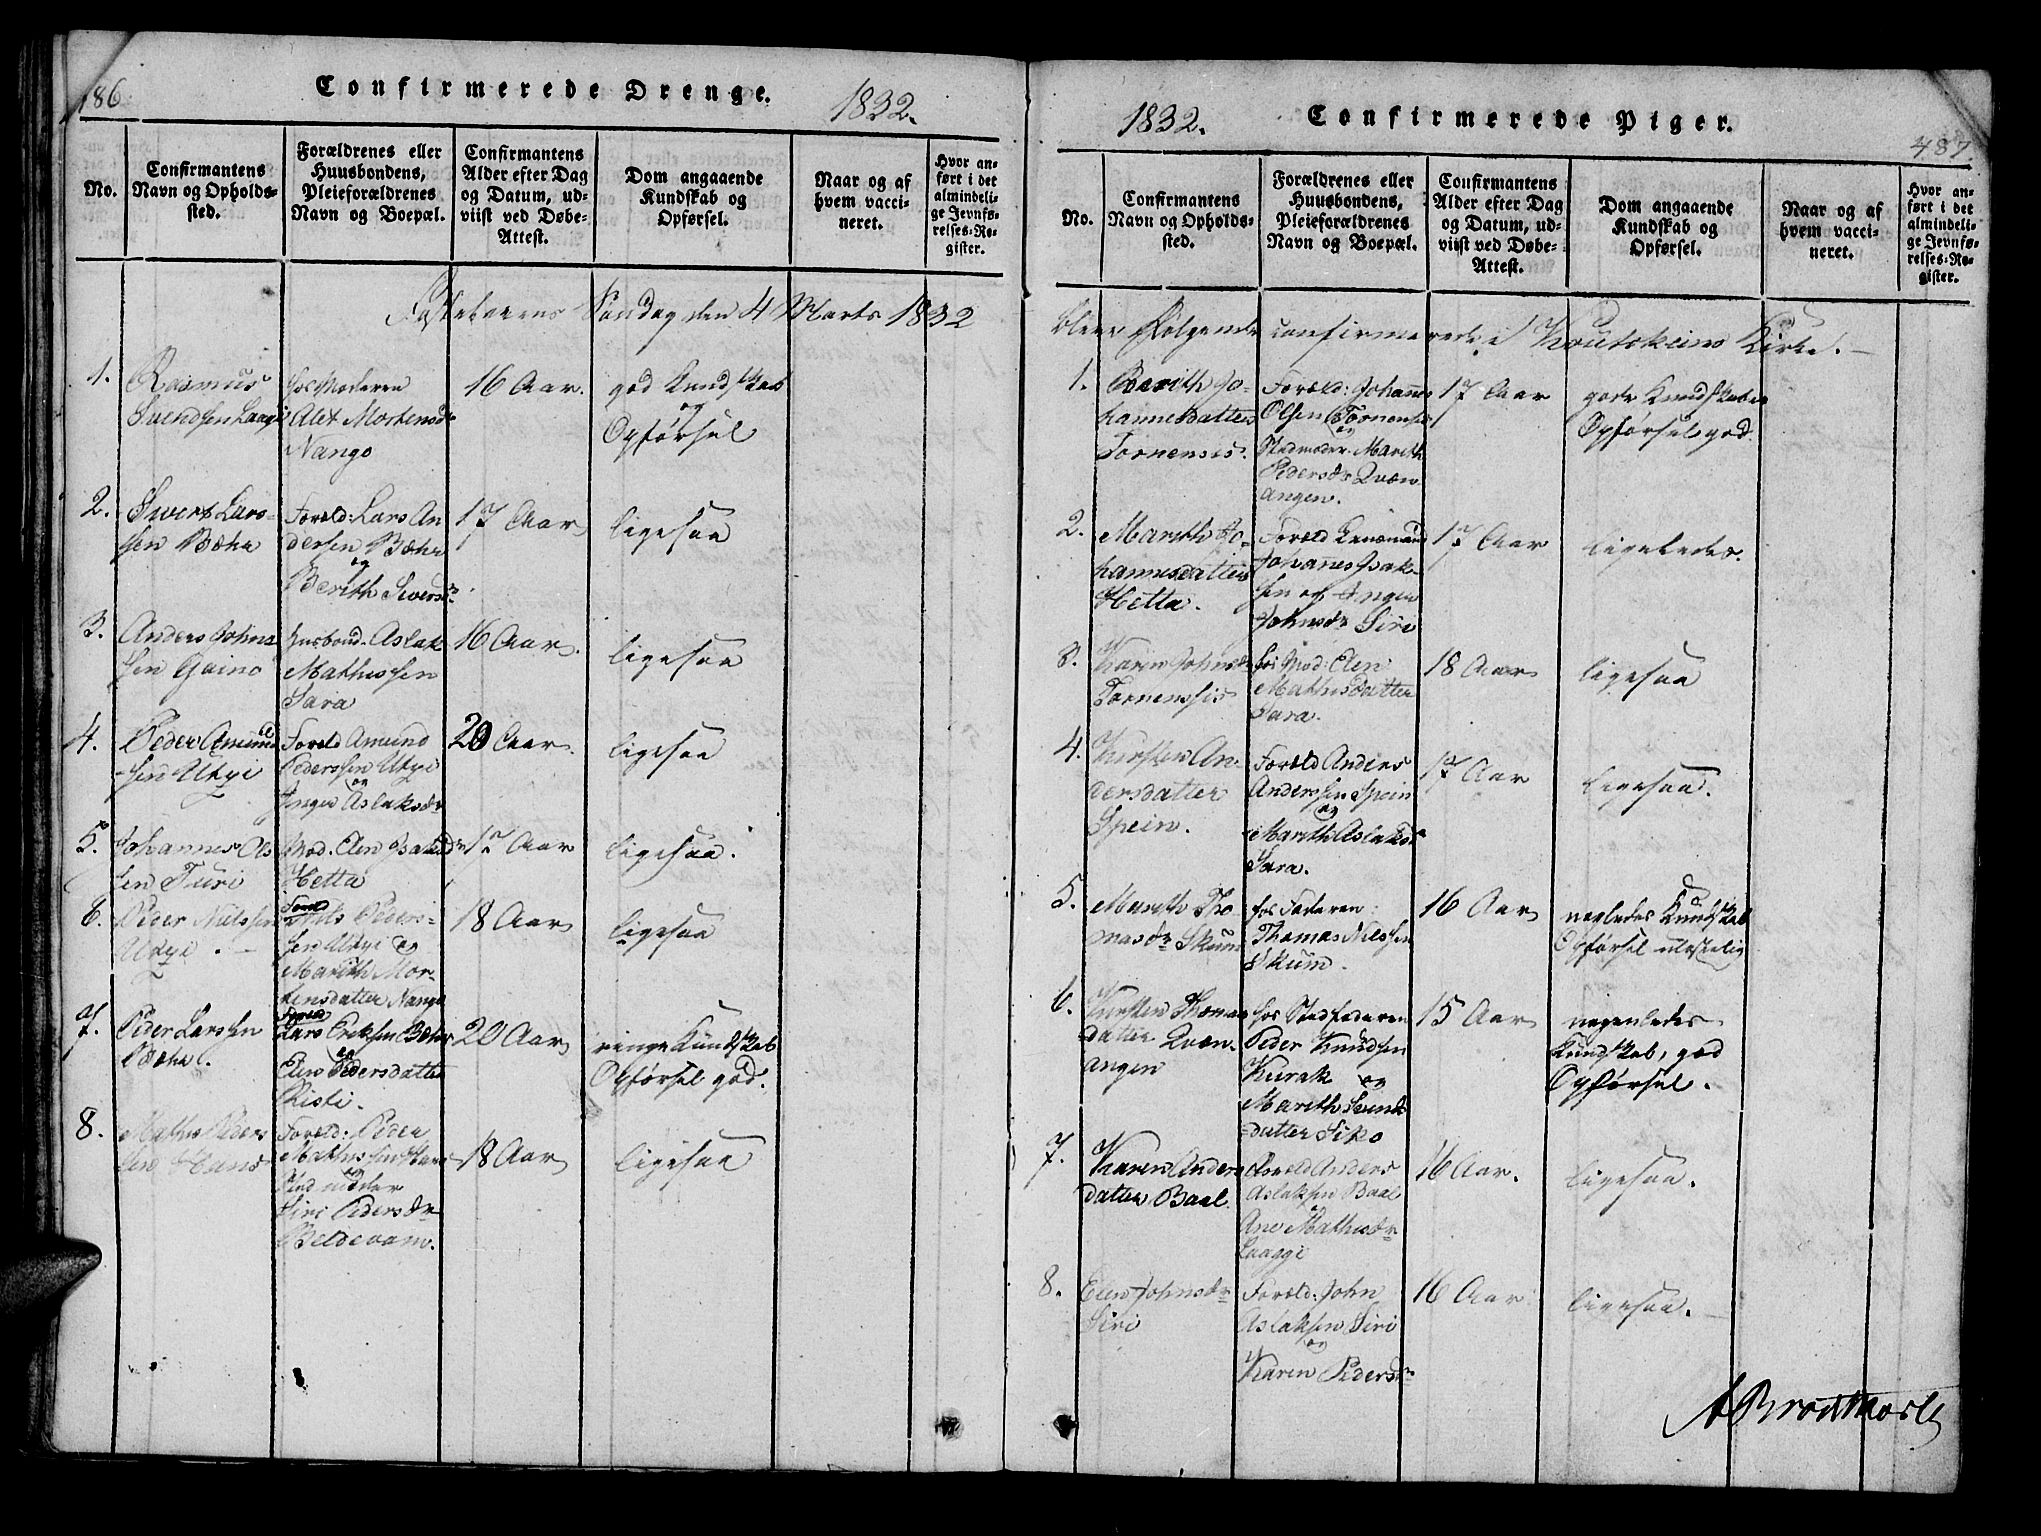 186
Confirmerede Drenge.
1832.
No.
Confirmantens
Navn og Opholds-
sted.
Forældrenes eller
Huusbondens,
Pleieforældrenes
Navn og Boepæl.
Confirmantens
Alder efter Dag
og Datum, ud-
viist ved Døbe-
Attest.
Dom angaaende
Kundskab og
Opførsel.
Naar og af
hvem vacci-
neret.
Hvor an-
ført i det
almindeli-
ge Jevnfø-
relses-Re-
gister.
Søndag den 4 Marts 1832
1.
Rasmus
Svendsen Laagje
hos Moderen
Alet Mortensd
Nango
16 Aar.
god Kundskab
og
Opførsel
2.
Sivert Lars-
sen Bæhr
Foreld: Lars An
dersen Bæhr
og
Berith Siversdr
17 Aar
ligesaa
3.
Anders Johns
sen Gaino
husbond. Aslak
Mathissen
Sara
16 Aar.
ligesaa
4.
Peder Amund
-sen Utzi
Foreld Amund
Pederssen Utzi
og
Inger Aslaksdr
20 Aar.
ligesaa
5.
Johannes Ols
sen Turi
Mod. Elen Isaksdr
Hetta
17 Aar
ligesaa.
6.
Peder Nilssen
Utzi.
Nils Peders-
sen Utzi og
Marith Mor-
tensdatter Nango
18 Aar
ligesaa
7.
Peder Larssen
Bæhr.
Lars Eriksen Bæhr
og
Elen Pedersdatter
Risti.
20 Aar
ringe Kundskab
Opførsel god.
8.
Mathis Peders
sen Hans
Foreld: Peder
Mathissen Hans
og
Siri Pedersdr
Beldovam.
18 Aar
ligesaa
1832.
Confirmerede Piger.
487
No.
Confirmantens
Navn og Opholds-
sted.
Forældrenes eller
Huusbondens,
Pleieforældrenes
Navn og Boepæl.
Confirmantens
Alder efter Dag
og Datum, ud-
viist ved Døbe-
Attest.
Dom angaaende
Kundskab og
Opførsel.
Naar og af
hvem vacci-
neret.
Hvor an-
ført i det
almindeli-
ge Jevnfø-
relses-Re-
gister.
bleve følgende confirmerede i Koutokeino Kirke.
1.
Berith Jo-
hannesdatter
Tornensis.
Foreld: Johannes
Olsen Tornensis
og
Stedmoder Marith
Pedersdr Qvæn
angen.
17 Aar
gode Kundskaber
Opførsel god
2.
Marith Jo-
hannesdatter
Hetta.
Foreld
Johannes Isak-
sen og Inger
Johnsdr Siri
17 Aar
ligeledes.
3.
Karen Johnsdr
Tornensis
hos Mod: Elen
Mathisdatter
Sara.
18 Aar
ligesaa
4.
Kirsten An-
dersdatter
Spein.
Foreld Anders
Anderssen Spein
og
Marith Aslaksdr
Sara.
17 Aar
ligesaa.
5.
Marith Tho
masdr Skum
hos Faderen:
Thomas Nilssen
Skum.
16 Aar
nogledes Kundskab
Opførsel ulastelig
6.
Kirsten Thomas
datter Qvæn-
angen
hos Stedfaderen
Peder Knudsen
Kurak og
Marith Svends
datter Siko
15 Aar
nogenledes
Kundskab, god
Opførsel.
7.
Karen Anders
datter Baal
Foreld Anders
Aslaksen Baal
Ane Mathisdr
Laaggi
16 Aar.
ligesaa.
8.
Elen Johnsdr
Siri
Foreld: John
Aslaksen Siri
og
Karen Pedersdr
16 Aar
ligesaa.